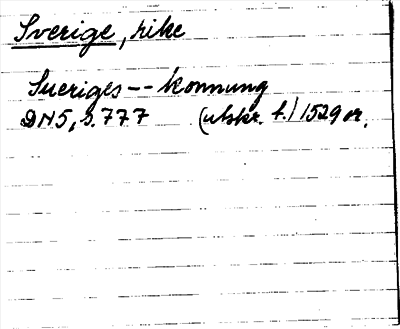 Sverige, rike
Sueriges -- konnung
DN5, s. 777 (utskr. f.) 1529 or.